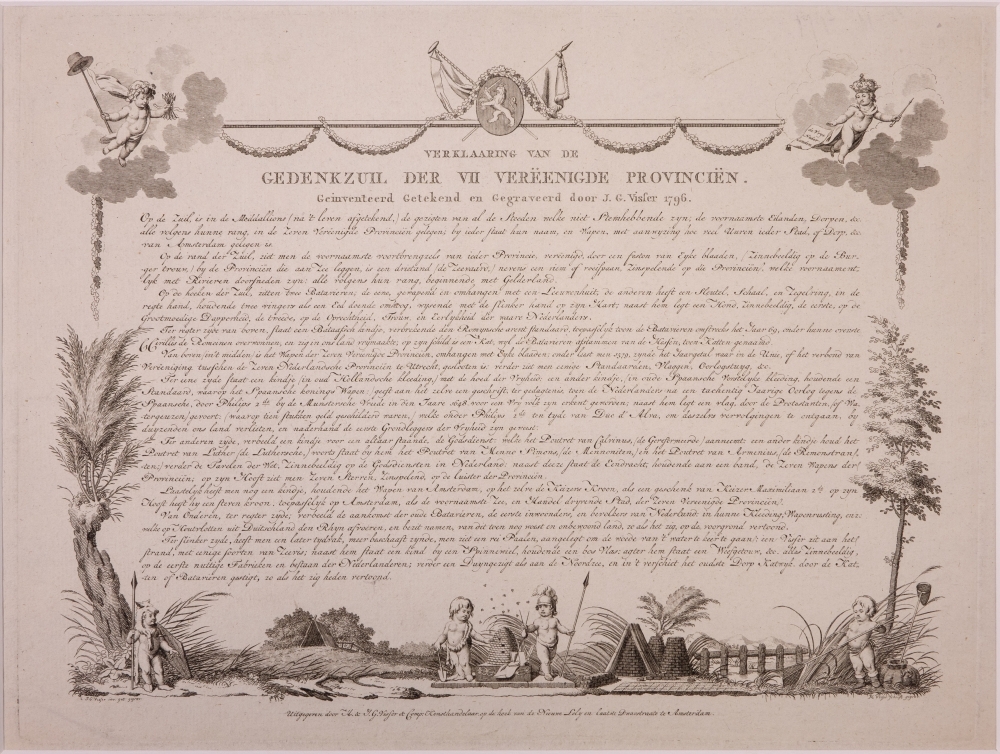 VERKLAARING VAN DE
GEDENKZUIL DER VII VERËENIGDE PROVINCIËN.
Geinventeerd Getekend en Gegraveerd door J. G. Visser 1796.
Op de Zuil, is in de Meddaillions (na 't leven afgetekend,) de gezigten van al de Steeden welke niet Stemhebbende zyn; de voornaamste Eilanden, Dorpen, &c.
alle volgens hunne rang, en in de Zeven Veréénigde Provinciën gelegen; by ieder staat hun naam, en Wapen, met aanwyzing hoe veel Uuren ieder Stad, of Dorp, &c.
van Amsterdam gelegen is.
Op de rand der Zuil, ziet men de voornaamste voortbrengzels van ieder Provincie, verëenigd, door een feston van Eyke blaaden, (Zinnebeeldig op de Bur-
ger trouw,) by de Provinciën die aan Zee leggen, is een drietand (de Zeevaart,) nevens een riem of roeispaan, Zinspelende op die Provinciën, welke voornaament,
lyk met Rivieren doorsneden zyn: alle volgens hun rang, beginnende met Gelderland.
Op de hoeken der Zuil, zitten twee Batavieren; de eene, gewapend en omhangen met een Leeuwenhuit, de anderen heeft een Sleutel, Schaal, en Zegelring, in de
regte hand, houdende twee vingers als een Eed doende omhoog, wyzende met de slinker hand op zyn Hart; naast hem legt een Hond, Zinnebeeldig, de eerste, op de
Grootmoedige Dapperheid, de tweede, op de Oprechtheid, Trouw, en Eerlykheid der waare Nederlanders.
Ter regter zyde van boven, staat een Bataafsch kindje, verbreekende den Romynsche arent standaard, toepasselyk toen de Batavieren omstreeks het Jaar 69, onder hunne overste
C: Civillis de Romeinen overwonnen, en zig en ons land vrymaakte; op zyn schild is een Kat, wyl de Batavieren afstammen van de Hessen, toen Katten genaamd.
Van boven in't midden, is het Wapen der Zeven Vereenigde Provinciën, omhangen met Eyke blaaden; onder leest men 1579. zynde het Jaargetal waar in de Unie, of het verbond van
Vereeniging tusschen de Zeven Nederlandsche Provinciën te Utrecht, geslooten is: verder ziet men eenige Standaarden, Vlaggen, Oorlogstuyg, &c.
Ter eene zyde staat een kindje (in oud Hollandsche kleeding,) met de hoed der Vryheid: een ander kindje, in oude Spaansche Vorstelyke kleeding, houdende een
Standaard, waarop het Spaansche konings Wapen, geeft aan het zelve een geschrift, ter gedagtenis toen de Nederlanders na een tachentig Jaarige Oorlog (tegens de
Spaansche,) door Philips 4de by de Munstersche Vreede in den Jaare 1648 voor een Vry volk zyn erkent geworden: naast hem legt een vlag, door de Protestanten, (of Wa-
tergeuzen,) gevoert, (waarop tien stukken geld geschilderd waren,) welke onder Philips 2de ten tyde van Duc d'Alva, om deszelvs vervolgingen te ontgaan, by
duyzenden ons land verlieten, en naderhand de eerste Grondleggers der Vryheid zyn geweest.
Ter anderen zyde, verbeeld een kindje voor een altaar staande, de Godsdienst: welke het Poutret van Calvinus, (de Gereformeerde) aanneemt: een ander kindje houd het
Poutret van Luther (de Luthersche,) voorts staat by hem het Poutret van Menno Simons, (de Mennoniten,) en het Poutret van Armenius, (de Remonstran,
ten,) verder de Tafelen der Wet, Zinnebeeldig op de Godsdiensten in Nederland: naast deeze staat de Eendracht, houdende aan een band, de Zeven Wapens der
Provinciën, op zyn Hooft ziet men Zeven Sterren, Zinspelend, op de luister der Provinciën.
Laastelyk heeft men nog een kindje, houdende het Wapen van Amsterdam, op het zelve de Keizers Kroon, als een geschenk van Keizer Maximiliaan op zyn
Hooft heeft hy een steeden kroon, toepasselyk op Amsterdam, als de voornaamste Zee, en Handel dryvende Stad, der Zeven Vereenigde Provinciën.
Van Onderen, ter regter zyde, verbeeld de aankomst der oude Batavieren, de eerste inwoonders, en bevolkers van Nederland, in hunne Kleeding, Wapenrusting, enz:
welke op Houtvlotten uit Duitschland den Rhyn afvoeren, en bezit namen, van dit toen nog woest en onbewoond land, zo als het zig, op de voorgrond vertoond.
Ter slinker zyde, heeft men een later tydvak, meer beschaaft zynde, men ziet een rei Paalen, aangelegt om de woede van 't water te keer te gaan: een Visser zit aan het
strand, met eenige soorten van Zeevis; naast hem staat een kind by een Spinnewiel, houdende een bos Vlas; agter hem staat een Weefgetouw, &c. alles Zinnebeeldig,
op de eerste nuttige Fabrieken en bestaan der Nederlanderen; verder een Duyngezigt als aan de Noordzee, en in 't verschiet het oudste Dorp Katwyk, door de Kat-
ten of Batavieren gestigt, zo als het zig heden vertoond.
Uitgegeven door H. & J. G. Visser & Comp: Konsthandelaar op de hoek van de Nieuwe Lely en Laatste Dwarsstraate te Amsterdam.